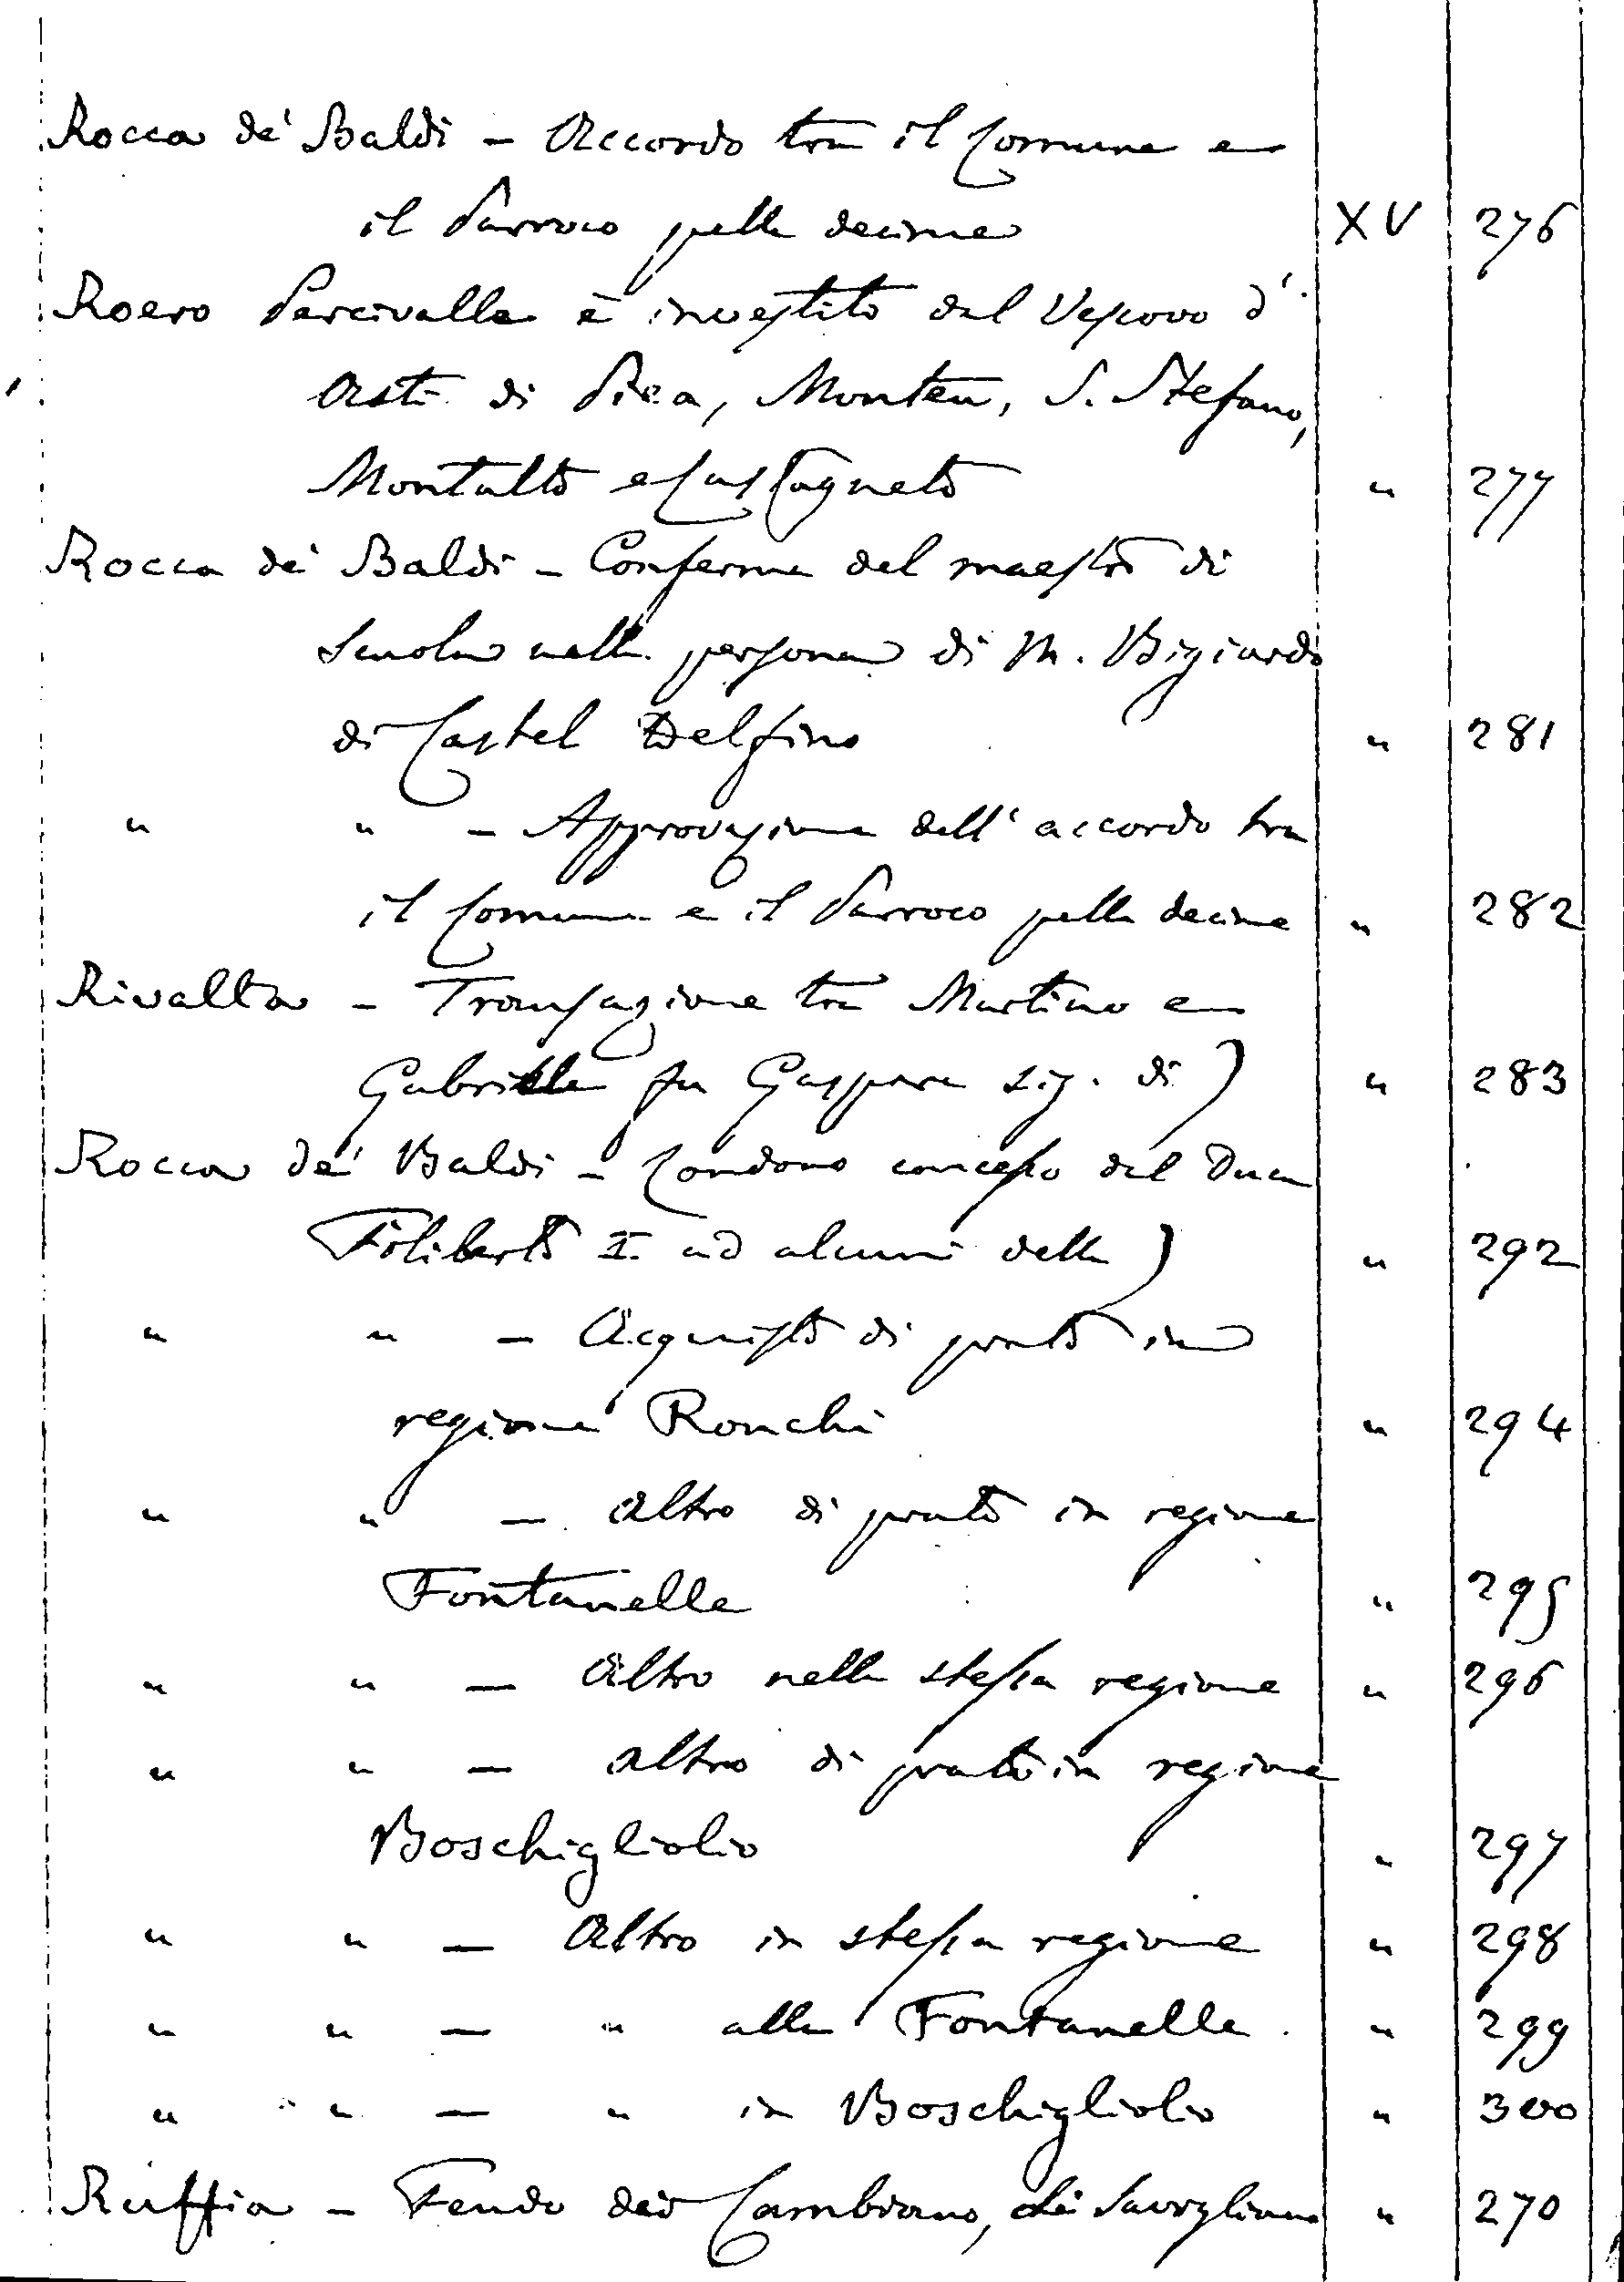 Rocca de' Baldi - Accordo tra il Comune e
il Parroco pelle decime XV 276
Roero Percivalle è investito dal Vescovo d'
Asti di Piea, Monteu, S. Stefano,
Montaldo e Castagneto " 277
Rocca de' Baldi - Conferma del maestro di
Scuola nella persona di M. Bigiardo
di Castel Delfino " 281
" " - Approvazione dell' accordo tra
il Comune e il Parroco pelle decime " 282
Rivalta - Transazione tra Martino e
Gabriele fu Gaspare sig. di) " 283
Rocca de' Baldi - Condono concesso dal Duca
Filiberto I ad alcuni della) " 292
" " - Acquisto di prato in
regione Ronchi " 294
" " - Altro di prato in regione
Fontanelle " 295
" " - Altro nella stessa regione " 296
" " - Altro di prato in regione
Boschigliolio " 297
" " - Altro in stessa regione " 298
" " - " alle Fontanelle " 299
" " - " in Boschigliolio " 300
Ruffia - Feudo dei Cambiano, di Savigliano " 270